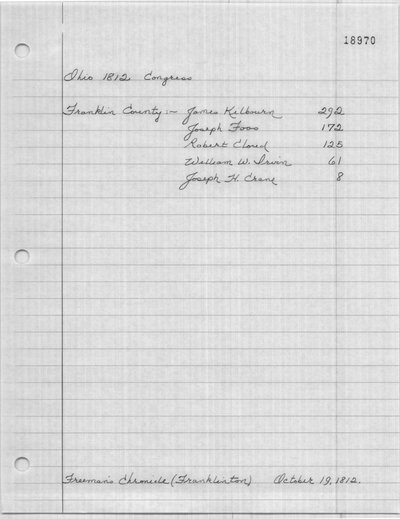 18970
Ohio 1812 Congress
Franklin County:- James Kilbourn 292
Joseph Foos 172
Robert Cloud 125
William W. Irvin 61
Joseph H. Crane 8
Freeman's Chronicle (Franklinton) October 19, 1812.